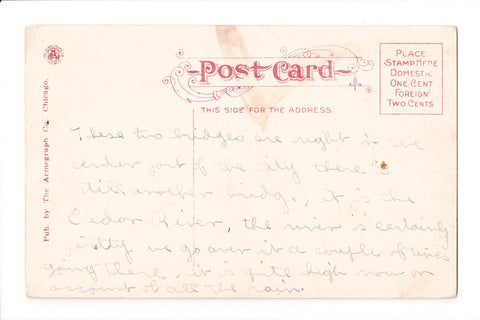 Post Card
THIS SIDE FOR THE ADDRESS.
PLACE
STAMP HERE
DOMESTIC
ONE CENT
FOREIGN
TWO CENTS
Pub. by The Acmegraph Co., Chicago.
These two bridges are right in the
center part of the city there is
still another bridge, it is the
Cedar River, the river is certainly
pretty we go over it a couple of times
going there, it is quite high now on
account of all the rain.